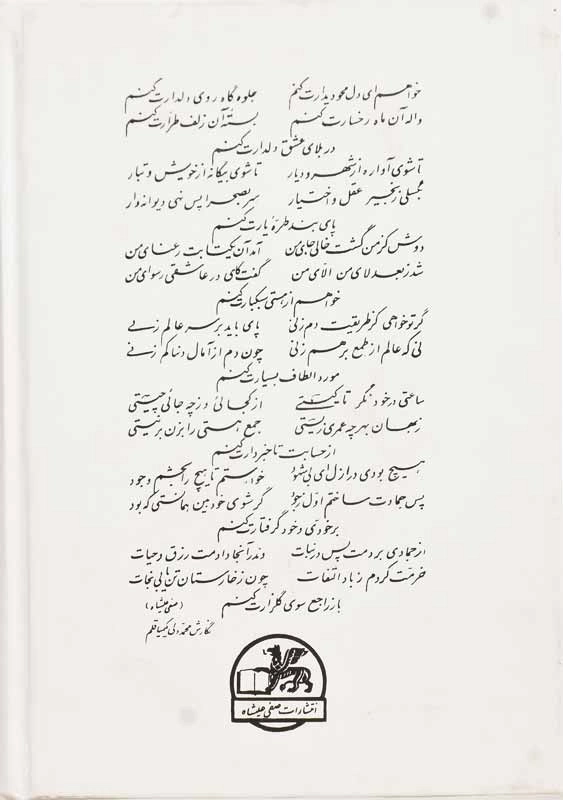 خواهم ای دل محو دیدارت کنم جلوه گاه روی دلدارت کنم
واله آن ماه رخسارت کنم بستهٔ آن زلف طرارت کنم
در بلای عشق دلدارت کنم
تا شوی آواره از شهر و دیار تا شوی بیگانه از خویش و تبار
بگسلی زنجیر عقل و اختیار سر بصحرا پس نهی دیوانه وار
پای بند طرّهٔ یارت کنم
دوش کز من گشت خالی جای من آمد آن یکتا بت رعنای من
شد ز بعد لای من الّای من گفت کای در عاشقی رسوای من
خواهم از هستی سبکبارت کنم
گر تو خواهی کز طریقت دم زنی پای باید بر سر عالم زنی
نی که عالم از طمع بر هم زنی چون دم از آمال دنیا کم زنی
مورد الطاف بسیارت کنم
ساعتی در خود نگر تا کیستی از کجائی و ز چه جائی چیستی
در جهان بهر چه عمری زیستی جمع هستی را بزن بر نیستی
از حسابت تا خبردارت کنم
هیچ بودی در ازل ای بی شهود خواستم تا هیچ را بخشم وجود
پس جمادت ساختم اوّل ز جود گر شوی خودبین همانستی که بود
بر خودی خود گرفتارت کنم
از جمادی بردمت پس در نبات وندر آنجا دادمت رزق و حیات
خرمّت کردم ز باد التفات چون ز خارستان تن یابی نجات
باز راجع سوی گلزارت کنم
(صفی علیشاه)
نگارش محمد ولی کیمیا قلم
انتشارات صفی علیشاه